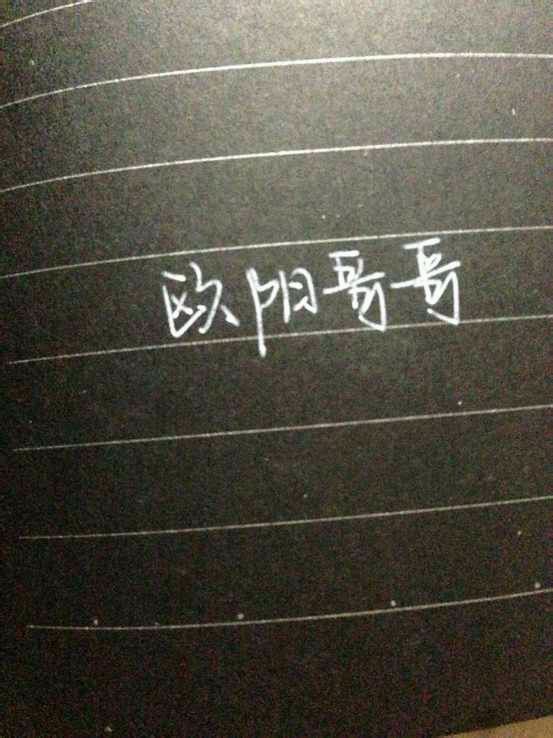 欧阳哥哥